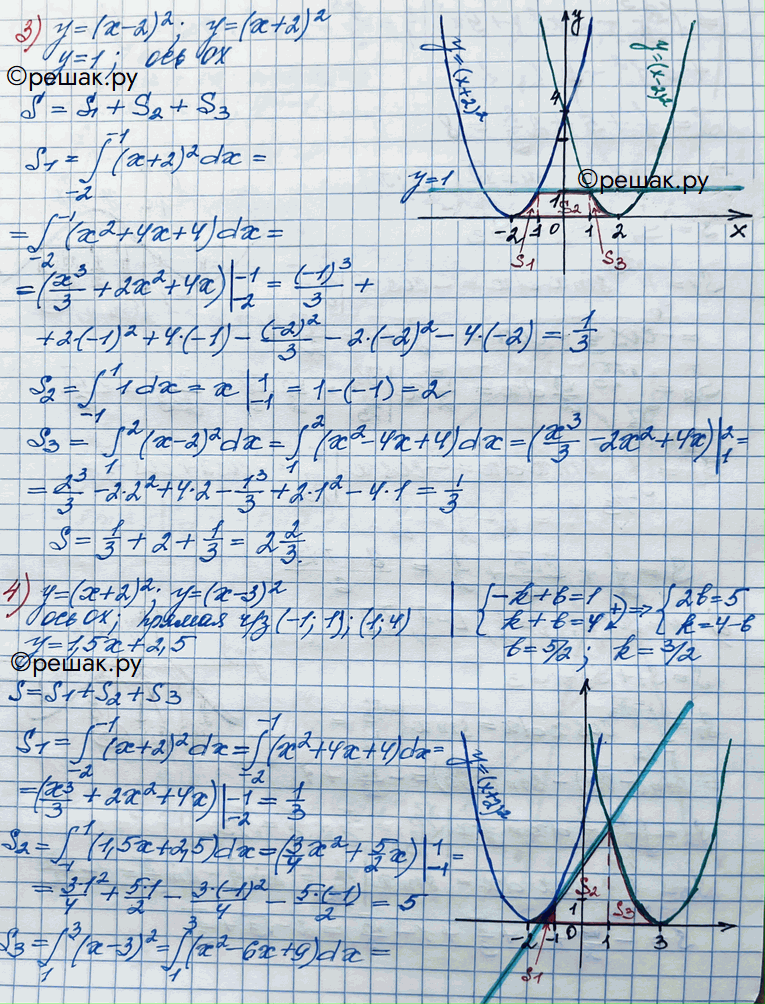 3) y=(x-2)²; y=(x+2)²
y=1; ось OX
©решак.ру
S = S1 + S2 + S3
S1 = ∫₋₂⁻¹ (x+2)² dx =
= ∫₋₂⁻¹ (x²+4x+4) dx =
= (x³/3 + 2x² + 4x) |₋₂⁻¹ = (-1)³/3 +
+ 2·(-1)² + 4·(-1) - (-2)²/3 - 2·(-2)² - 4·(-2) = 1/3
S2 = ∫₋₁¹ 1 dx = x |₋₁¹ = 1-(-1) = 2
S3 = ∫₁² (x-2)² dx = ∫₁² (x²-4x+4) dx = (x³/3 - 2x² + 4x) |₁² =
= 2³/3 - 2·2² + 4·2 - 1³/3 + 2·1² - 4·1 = 1/3
S = 1/3 + 2 + 1/3 = 2 2/3.
y=(x+2)²
y
y=(x-2)²
4
y=1
©решак.ру
1
S2
-2 -1 0 1 2 x
S1 S3
4) y=(x+2)²; y=(x-3)²
ось OX; прямая ч/з (-1; 1); (1; 4)
y=1,5x+2,5
©решак.ру
{ -k+b=1
k+b=4 (+) => { 2b=5
k=4-b
b=5/2; k=3/2
S=S1+S2+S3
S1 = ∫₋₂⁻¹ (x+2)² dx = ∫₋₂⁻¹ (x²+4x+4) dx =
= (x³/3 + 2x² + 4x) |₋₂⁻¹ = 1/3
S2 = ∫₋₁¹ (1,5x+2,5) dx = (3/4 x² + 5/2 x) |₋₁¹ =
= 3·1²/4 + 5·1/2 - 3·(-1)²/4 - 5·(-1)/2 = 5
S3 = ∫₁³ (x-3)² = ∫₁³ (x²-6x+9) dx =
y=(x+2)²
S2
1
S3
-2 -1 0 1 3
S1